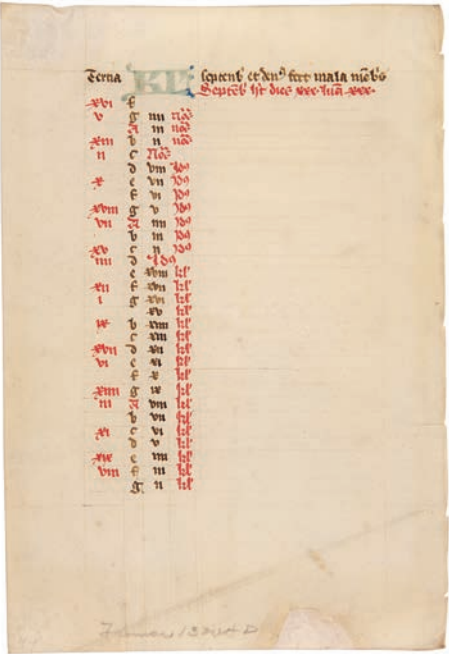 Tercia KL septenb et den9 fert mala mēb's
Septēb ht dies xxx lūā xxx
xvi f
v g iiii nōs
A iii nōs
xiii b ii nōs
ii c Nōs
d viii Id9
x e vii Id9
f vi Id9
xviii g v Id9
vii A iiii Id9
b iii Id9
xv c ii Id9
iiii d Id9
e xviii kl'
xii f xvii kl'
i g xvi kl'
xv kl'
ix b xiiii kl'
c xiii kl'
xvii d xii kl'
vi e xi kl'
f x kl'
xiiii g ix kl'
iii A viii kl'
b vii kl'
xi c vi kl'
d v kl'
xix e iiii kl'
viii f iii kl'
g ii kl'